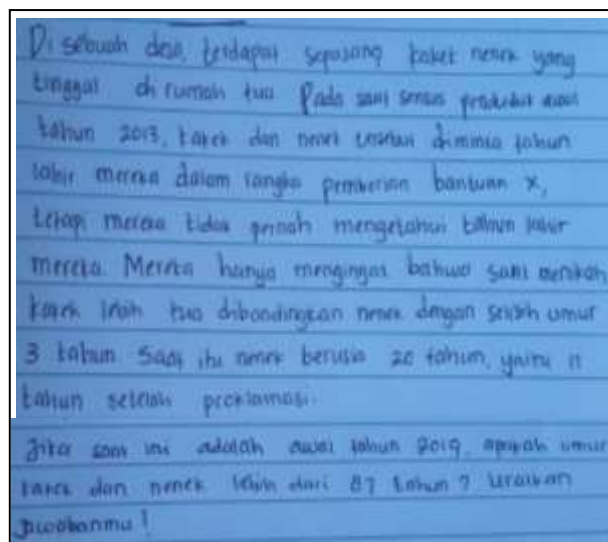 Di sebuah desa, terdapat sepasang kakek nenek yang
tinggal di rumah tua Pada saat sensus penduduk awal
tahun 2013, kakek dan nenek tersebut diminta tahun
lahir mereka dalam rangka pemberian bantuan X,
tetapi mereka tidak pernah mengetahui tahun lahir
mereka. Mereka hanya mengingat bahwa saat menikah
kakek lebih tua dibandingkan nenek dengan selisih umur
3 tahun Saat itu nenek berusia 20 tahun, yaitu 11
tahun setelah proklamasi.
Jika saat ini adalah awal tahun 2019, apakah umur
kakek dan nenek lebih dari 87 tahun ? Uraikan
jawabanmu !